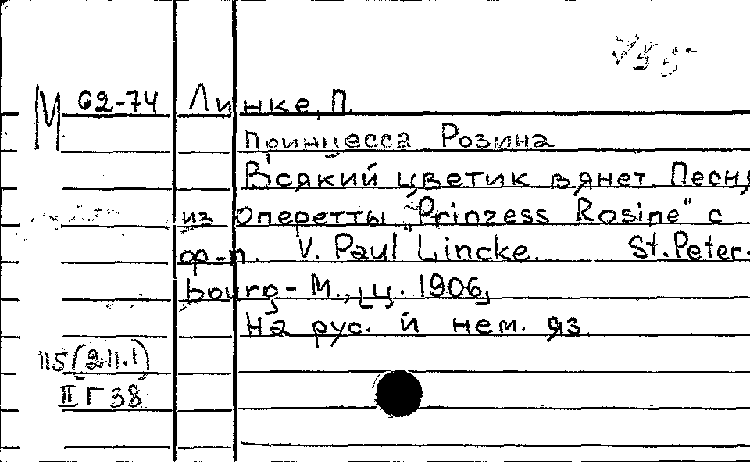 М 62-74 Линке, П.
Принцесса Розина
Всякий цветик вянет. Песня
из оперетты "Prinzess Rosine" с
ф-п. V. Paul Lincke. St. Peter-
bourg - M., Ц. 1906,
На рус. и нем. яз.
115(2.11.1)
II Г 38